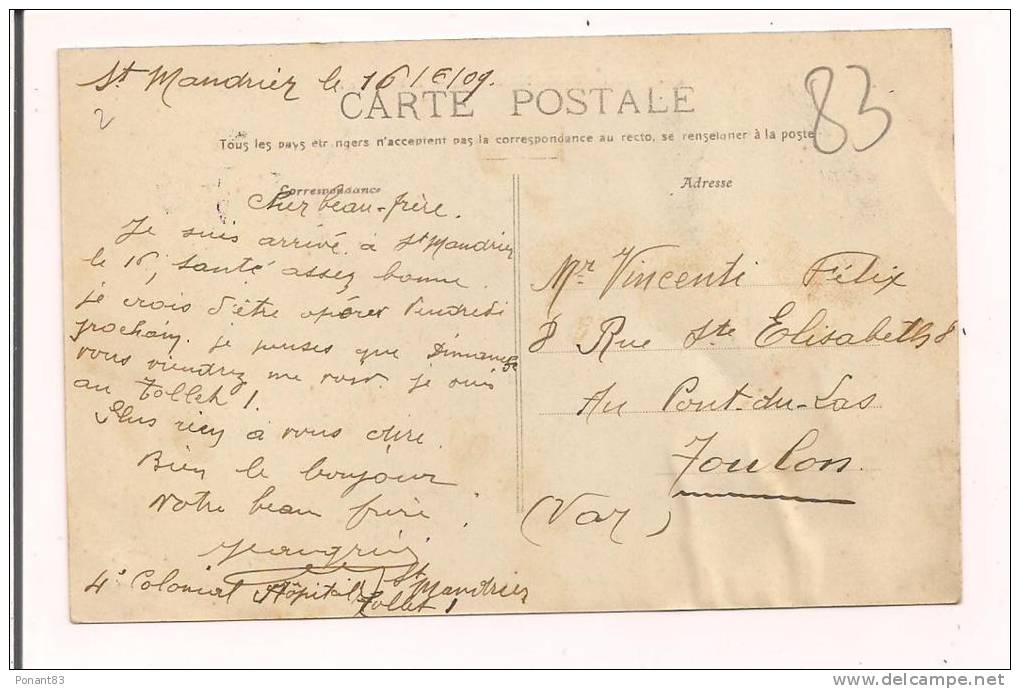 St Mandrier le 16/6/09.
83
2
CARTE POSTALE
Tous les pays étrangers n'acceptent pas la correspondance au recto, se renseigner à la poste
Correspondance
Cher beau-frère.
Je suis arrivé à St Mandrier
le 16, santé assez bonne.
je crois d'être opérer Vendredi
prochain. je penses que Dimanche
vous viendrez me voir. je suis
au Tollet 1.
Plus rien à vous dire.
Bien le bonjour
Votre beau frère.
4e Colonial Hôpital St Mandrier
Tollet 1
Adresse
Mr Vincenti Félix
8 Rue Ste Elisabeth 8
Au Pont-du-Las
Toulon
(Var)
Ponant83
delcampe.net